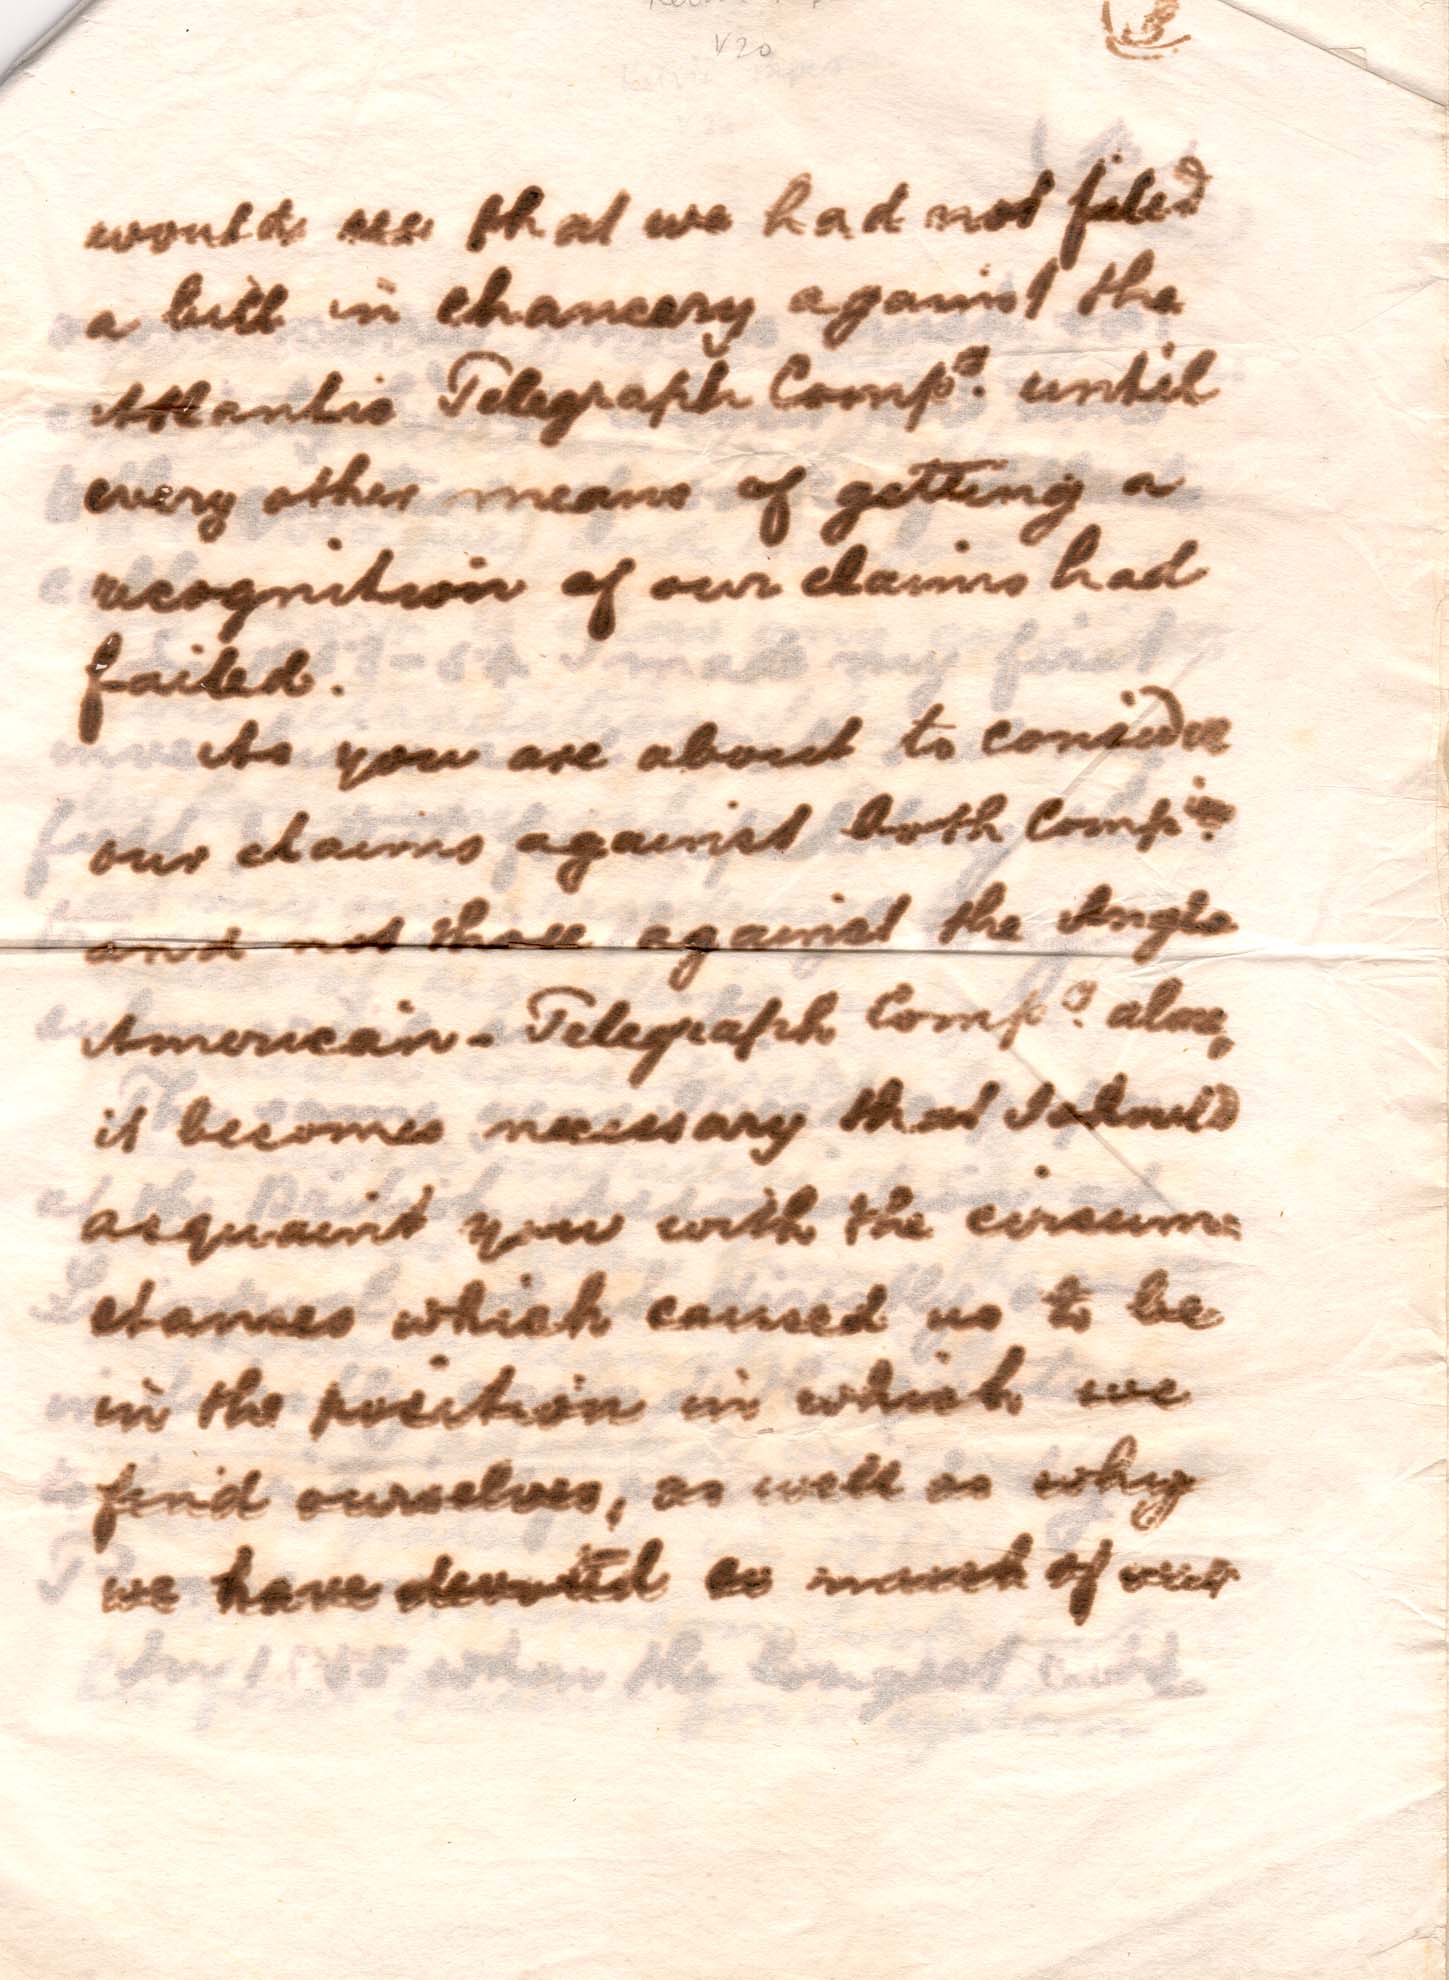 V20
would see that we had not filed
a bill in chancery against the
Atlantic Telegraph Compy. until
every other means of getting a
recognition of our claims had
failed.
As you are about to consider
our claims against both Compies.
and not those against the Anglo
American-Telegraph Compy. alone,
it becomes necessary that I should
acquaint you with the circum=
stances which caused us to be
in the position in which we
find ourselves, as well as why
we have devoted so much of our